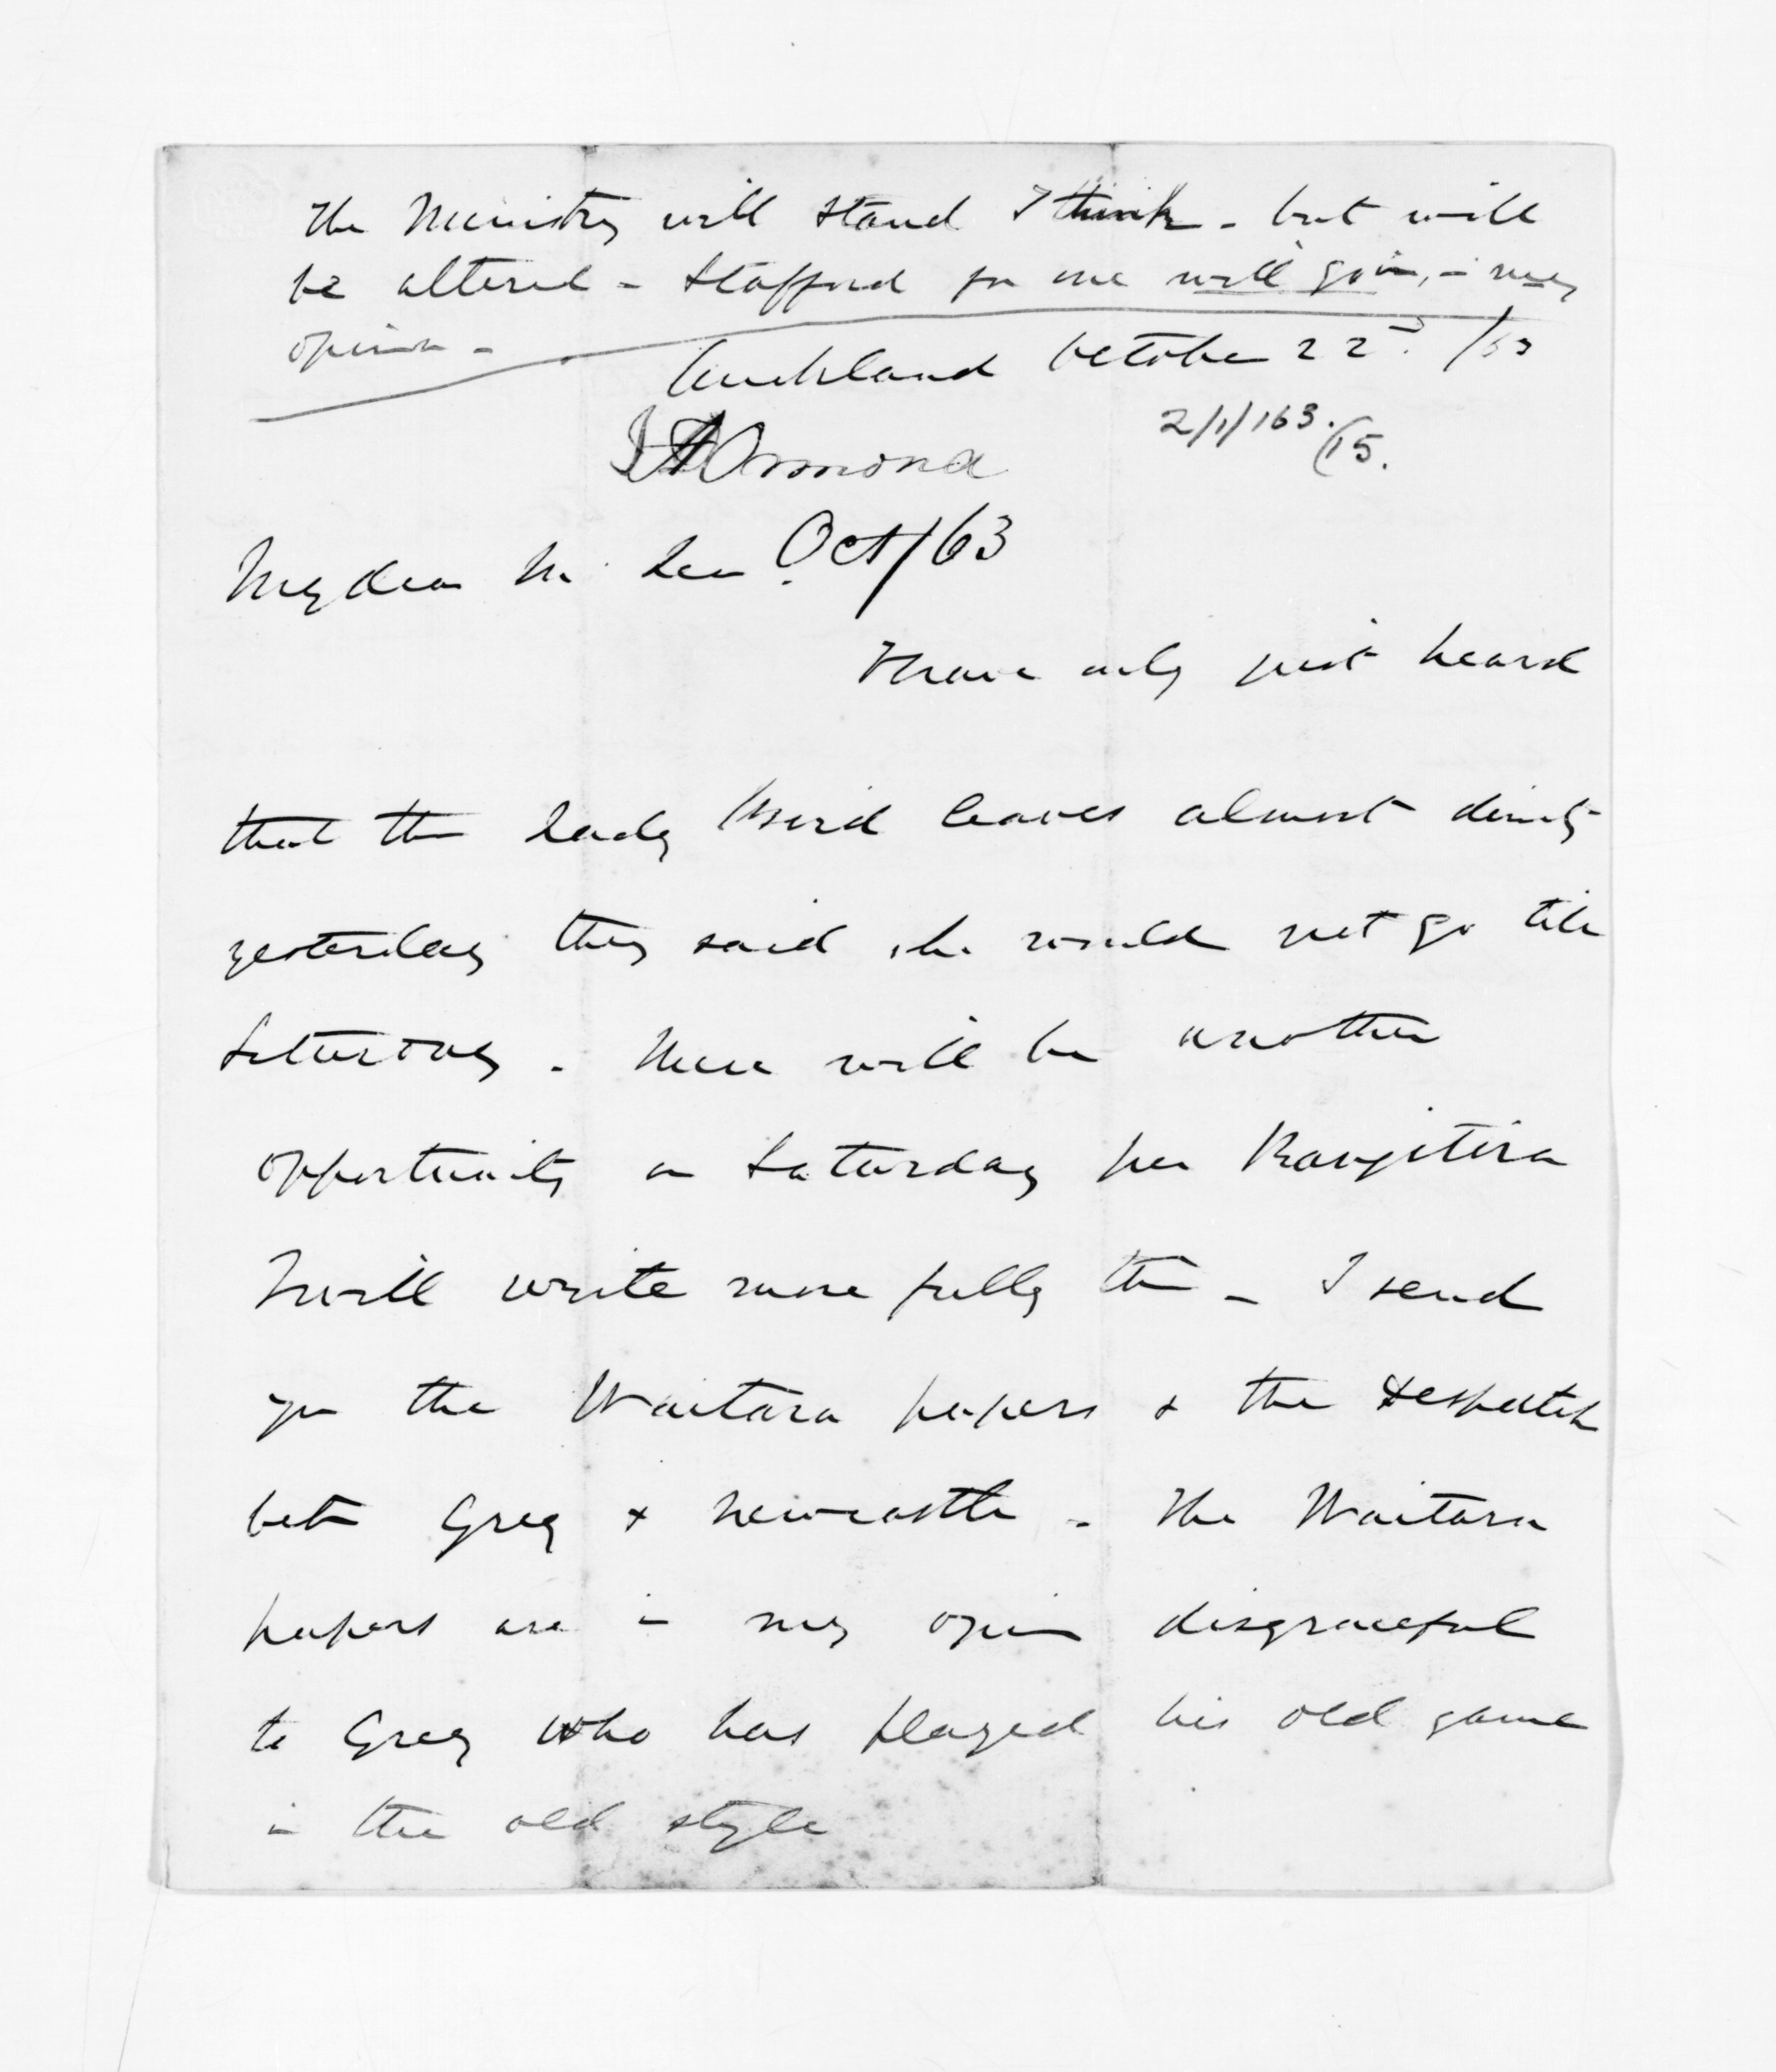 The Ministry will stand I think - but will
be altered - Stafford for one will go in, in my
opinion -
Auckland October 22nd. /63
2/1/163. (15.
JDOrmond
Oct/63
My dear Mc Lean
I have only just heard
that the Lady Bird leaves almost directly
yesterday they said she would not go till
Saturday. There will be another
opportunity on Saturday per Rangitira
I will write more fully then - I send
you the Waitara papers & the despatch
betn Grey & Newcastle - The Waitara
papers are in my opinion disgraceful
to Grey who has played his old game
in the old style